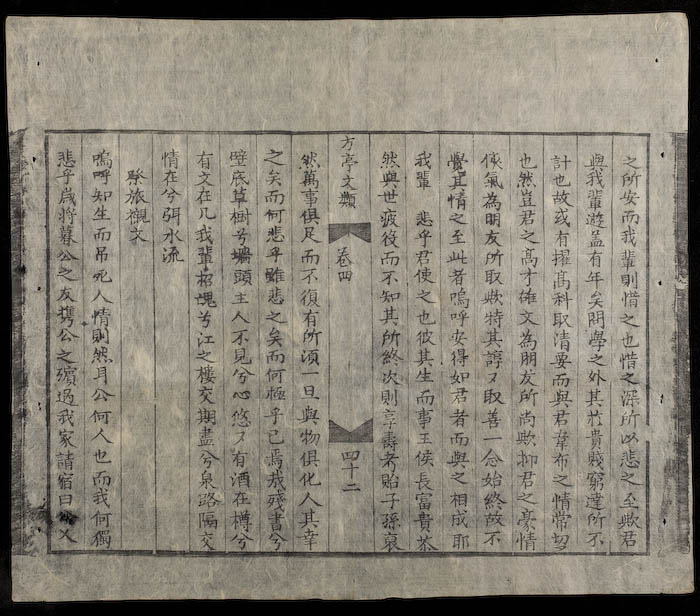 之所安而我輩則惜之也惜之深所以悲之至歟君
與我輩遊盖有年矣問學之外其於貴賤窮達所不
計也故或有擢髙科取清要而與君韋布之情常切
也然豈君之髙才雄文為朋友所尚歟抑君之豪情
俠氣為朋友所取歟特其諄〻取善一念始終故不
覺其情之至此者嗚呼安得如君者而與之相成耶
我輩 悲乎君使之也彼其生而事王侯長富貴苶
然與世疲役而不知其所終次則享壽考貽子孫裒
方亭文類 卷四 四十二
然萬事俱足而不復有所湏一旦與物俱化人其幸
之矣而何悲乎雖悲之矣而何極乎已焉哉殘書兮
壁底草樹兮墻頭主人不見兮心悠〻有酒在樽兮
有文在几我輩招魂兮江之樓交期盡兮泉路隔交
情在兮弭水流
祭旅櫬文
嗚呼知生而吊死人情則然耳公何人也而我何獨
悲乎歲將暮公之友携公之殯過我家請宿曰